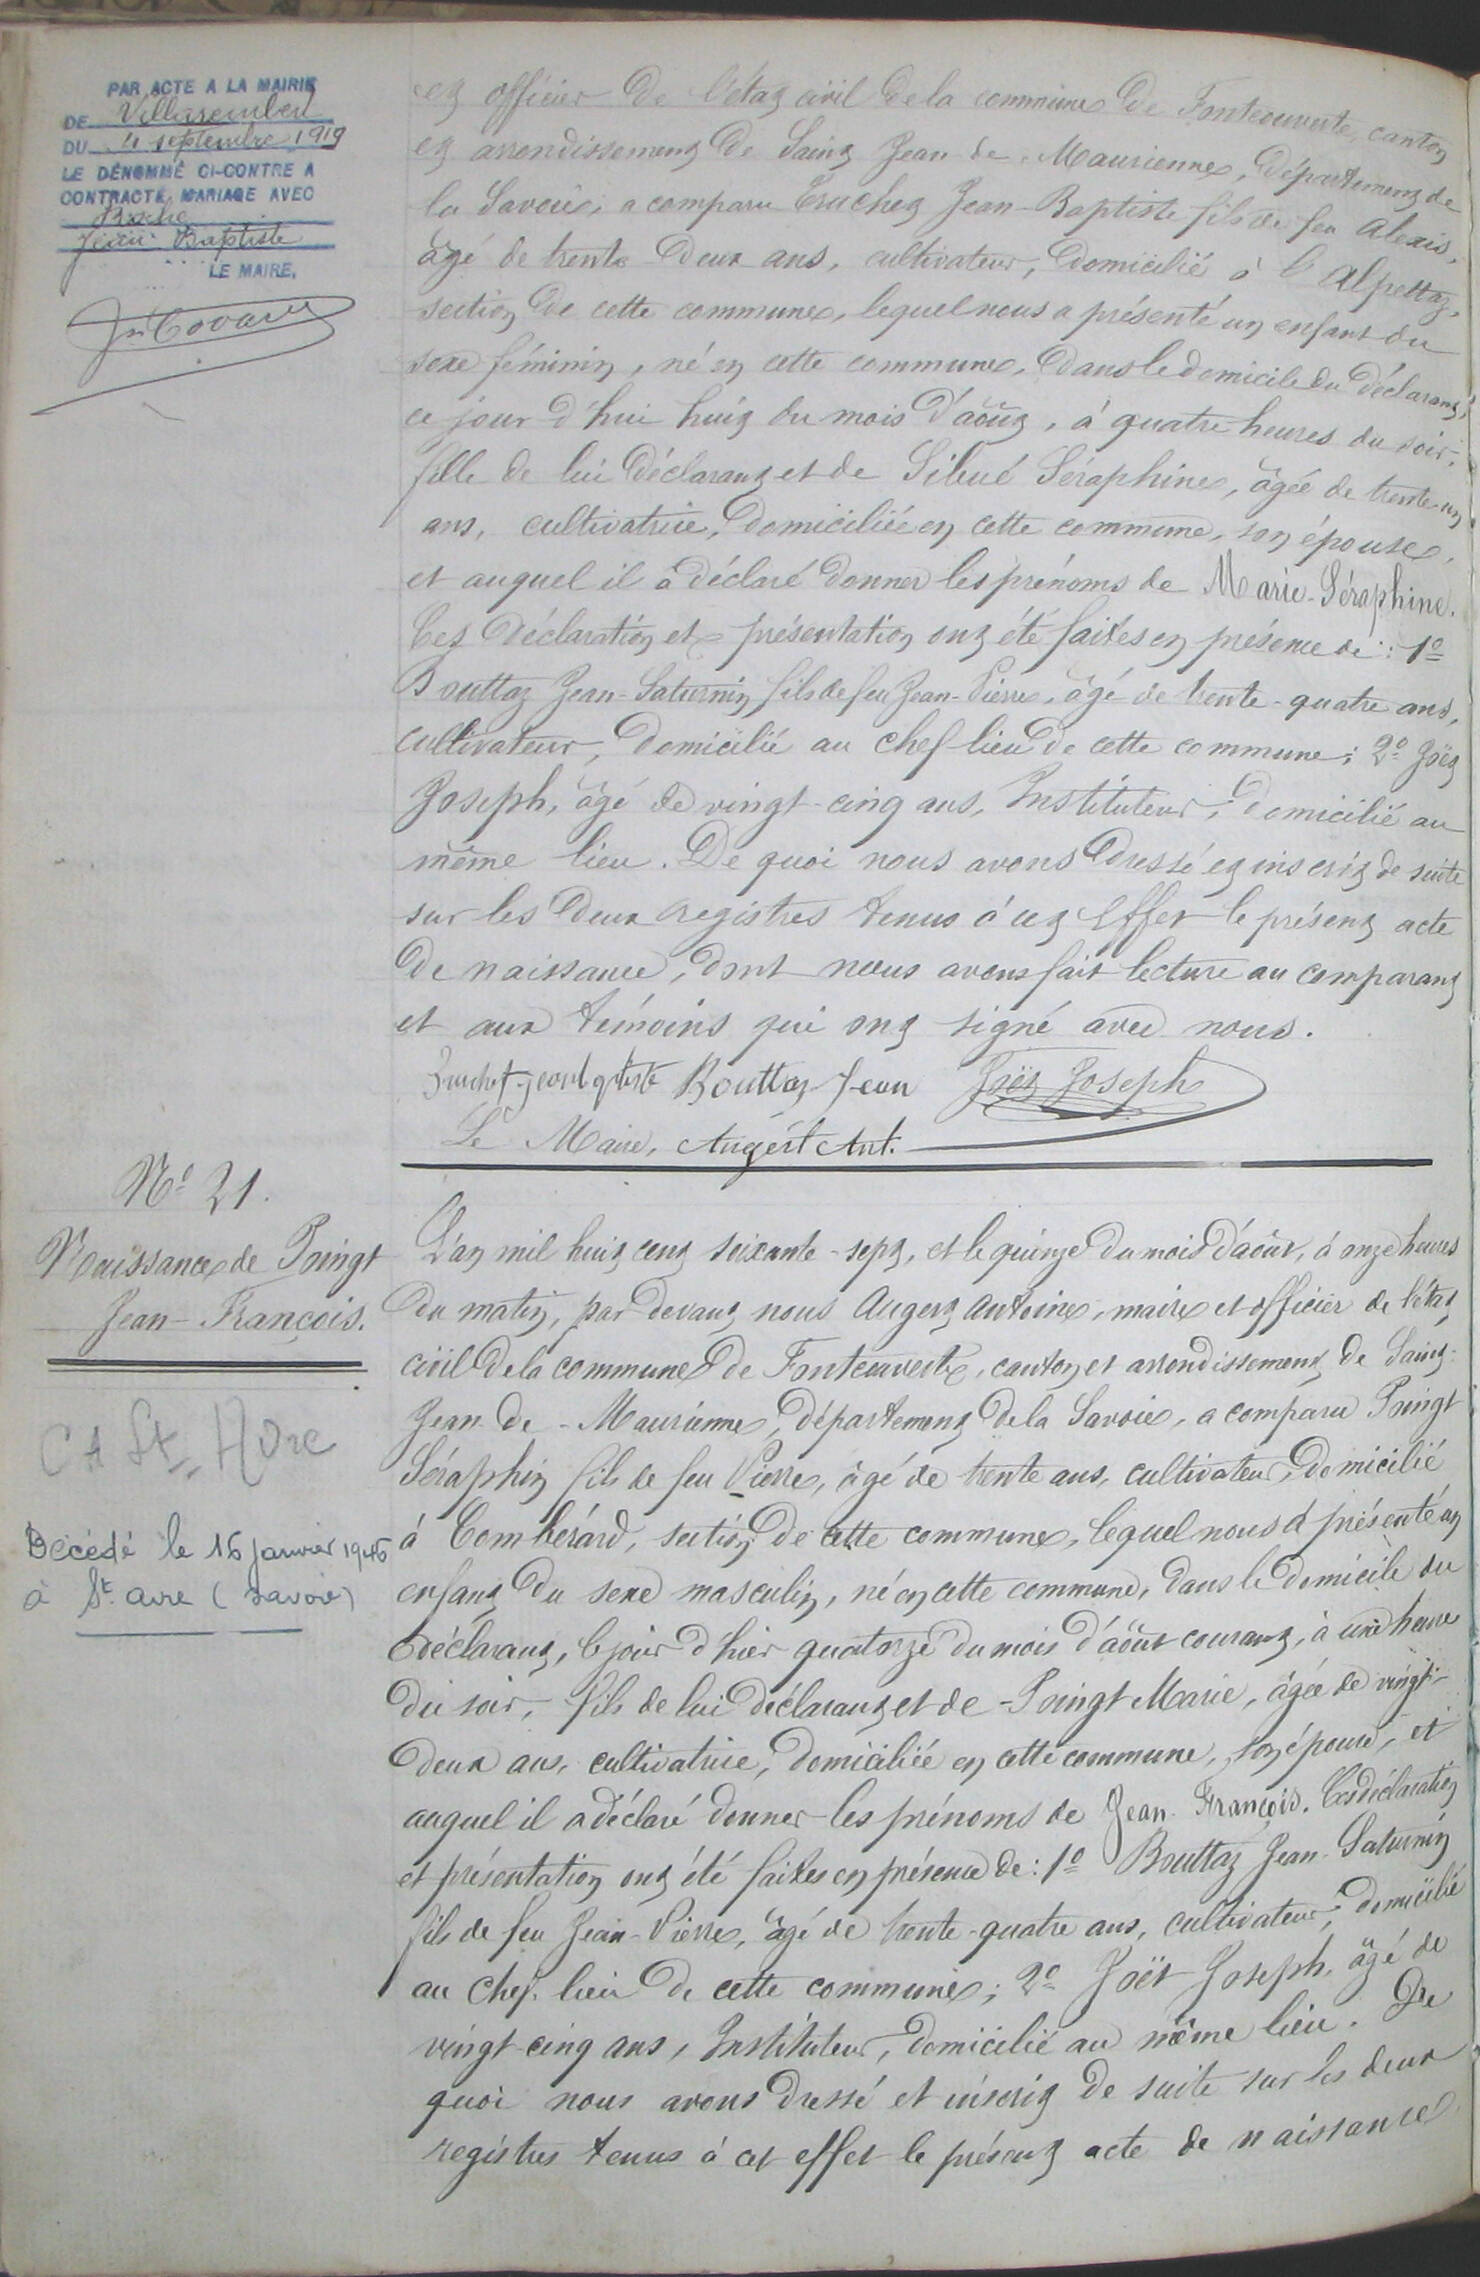 PAR ACTE A LA MAIRIE
DE Villarembert
DU 4 septembre 1919
LE DÉNOMMÉ CI-CONTRE A
CONTRACTÉ MARIAGE AVEC
Jean Baptiste
LE MAIRE,
et officier de l'état civil de la commune de Fontcouverte, canton
et arrondissement de Saint Jean de Maurienne, département de
la Savoie, a comparu Truchet Jean-Baptiste fils de feu Alexis,
âgé de trente deux ans, cultivateur, domicilié à l'Alpettaz,
section de cette commune, lequel nous a présenté un enfant du
sexe féminin, né en cette commune, dans le domicile du déclarant,
ce jour d'hui huit du mois d'août, à quatre heures du soir,
fille de lui déclarant et de Sibué Séraphine, âgée de trente-un
ans, cultivatrice, domiciliée en cette commune, son épouse,
et auquel il a déclaré donner les prénoms de Marie-Séraphine.
Ces déclaration et présentation ont été faites en présence de : 1º
Bouttaz Jean-Saturnin fils de feu Jean-Pierre, âgé de trente-quatre ans,
cultivateur, domicilié au chef-lieu de cette commune; 2º Joët
Joseph, âgé de vingt-cinq ans, Instituteur, domicilié au
même lieu. De quoi nous avons dressé et inscrit de suite
sur les deux registres tenus à cet effet le présent acte
de naissance, dont nous avons fait lecture au comparant
et aux témoins qui ont signé avec nous.
Truchet jeanbatiste Bouttaz Jean Joët Joseph
Le Maire, Augert Ant.
Nº 21.
Naissance de Poingt
Jean-François.
CA St-Avre
Décédé le 16 janvier 1946
à St. avre (savoie)
L'an mil huit cent soixante-sept, et le quinze du mois d'août, à onze heures
du matin, par devant nous Augert Antoine, maire et officier de l'état
civil de la commune de Fontcouverte, canton et arrondissement de Saint-
Jean-de-Maurienne, département de la Savoie, a comparu Poingt
Séraphin fils de feu Pierre, âgé de trente ans, cultivateur, domicilié
à Comberard, section de cette commune, lequel nous a présenté un
enfant du sexe masculin, né en cette commune, dans le domicile du
déclarant, le jour d'hier quatorze du mois d'août courant, à une heure
du soir, fils de lui déclarant et de Poingt Marie, âgée de vingt-
deux ans, cultivatrice, domiciliée en cette commune, son épouse, et
auquel il a déclaré donner les prénoms de Jean-François. Ces déclaration
et présentation ont été faites en présence de : 1º Bouttaz Jean-Saturnin
fils de feu Jean-Pierre, âgé de trente-quatre ans, cultivateur, domicilié
au chef-lieu de cette commune; 2º Joët Joseph, âgé de
vingt-cinq ans, Instituteur, domicilié au même lieu. De
quoi nous avons dressé et inscrit de suite sur les deux
registres tenus à cet effet le présent acte de naissance